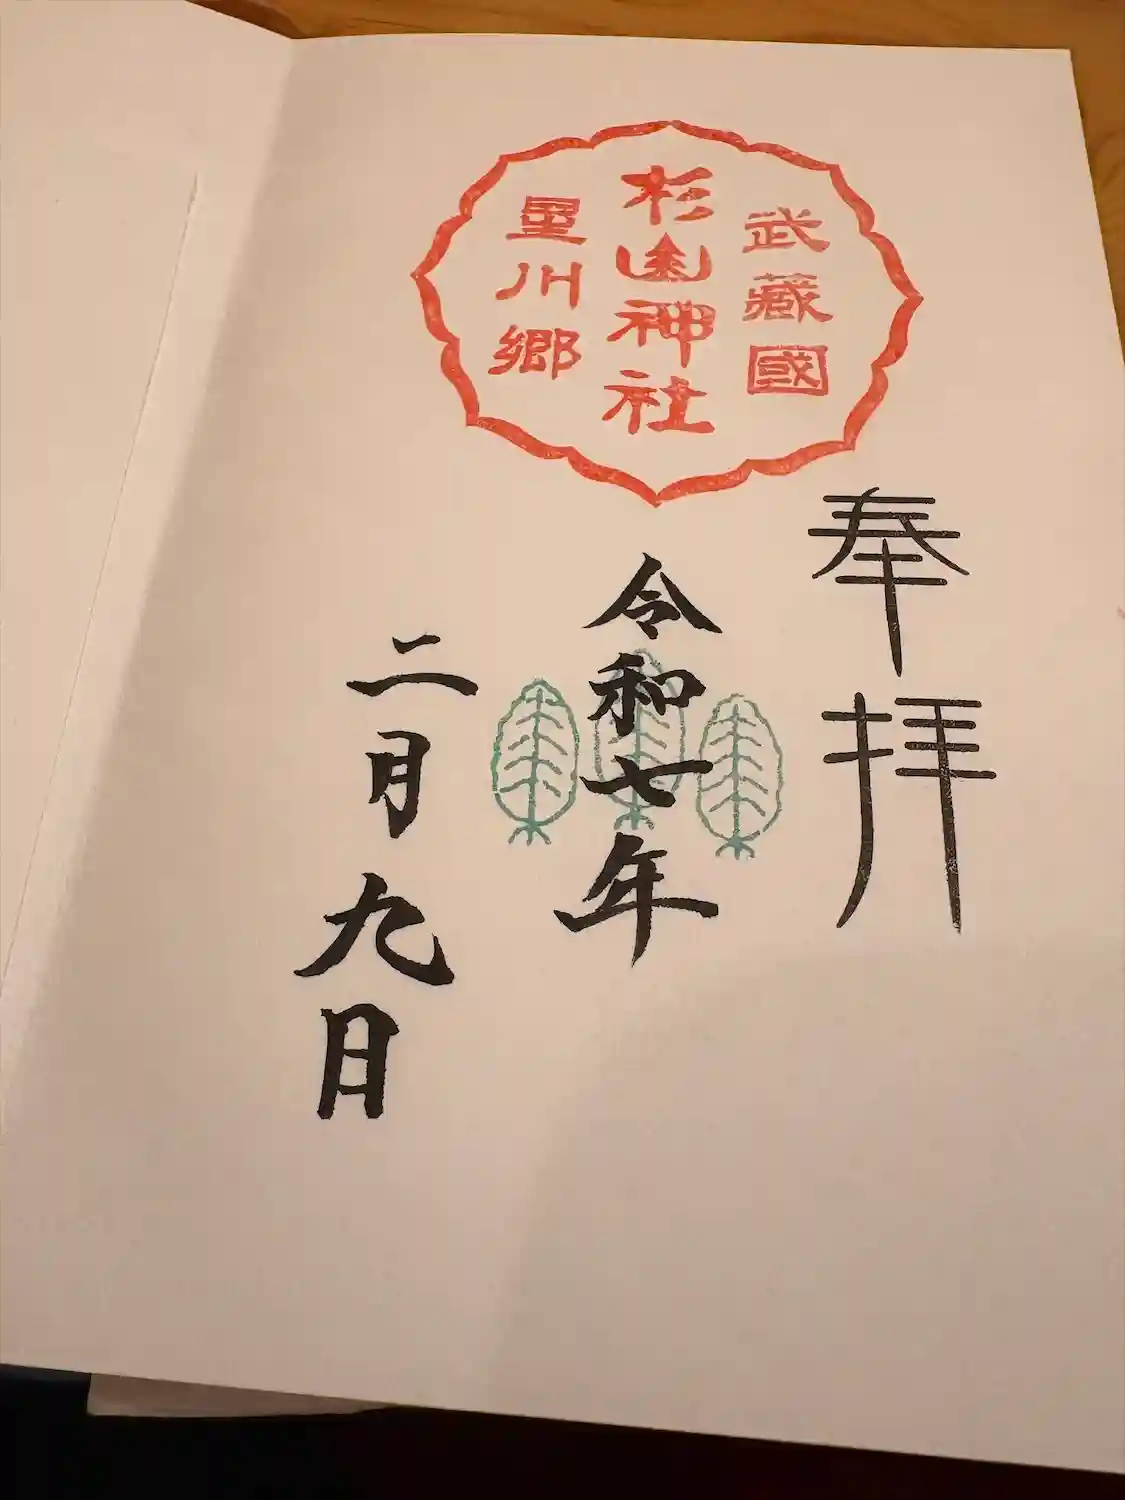 武藏國
杉山神社
星川郷
奉拝
令和七年
二月九日